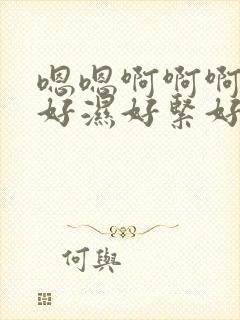 嗯嗯啊啊啊
好濕好緊好
何與